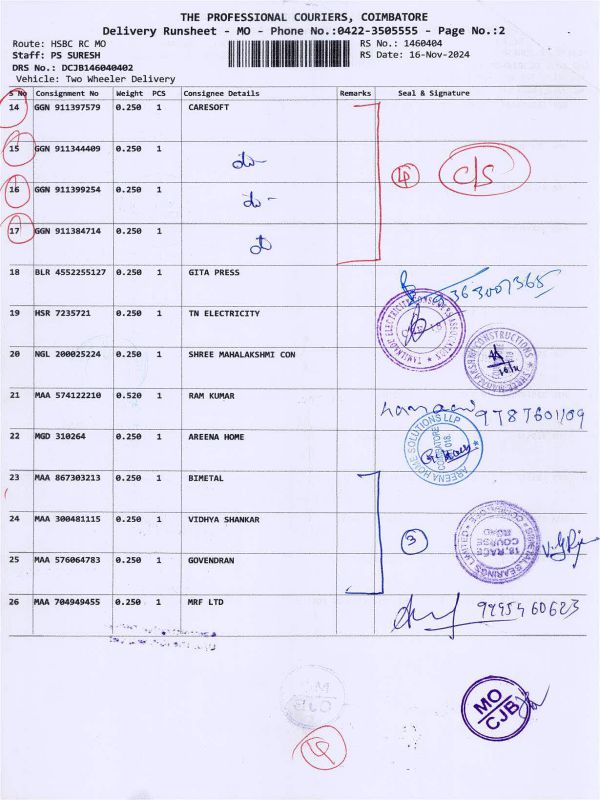 THE PROFESSIONAL COURIERS, COIMBATORE
Delivery Runsheet - MO - Phone No.:0422-3505555 - Page No.:2
Route: HSBC RC MO
RS No.: 1460404
Staff: PS SURESH
RS Date: 16-Nov-2024
DRS No.: DCJB146040402
Vehicle: Two Wheeler Delivery
S No Consignment No Weight PCS Consignee Details Remarks Seal & Signature
14 GGN 911397579 0.250 1 CARESOFT
15 GGN 911344409 0.250 1 do-
4 C/S
16 GGN 911399254 0.250 1 do-
17 GGN 911384714 0.250 1 do
18 BLR 4552255127 0.250 1 GITA PRESS
9363007365
19 HSR 7235721 0.250 1 TN ELECTRICITY
TAMILNADU ELECTRICITY CONSUMERS ASSOCIATION
20 NGL 200025224 0.250 1 SHREE MAHALAKSHMI CON
SHREE MAHALAKSHMI CONSTRUCTIONS
21 MAA 574122210 0.520 1 RAM KUMAR
9787601109
22 MGD 310264 0.250 1 AREENA HOME
AREENA HOME SOLUTIONS LLP
COIMBATORE
018.
23 MAA 867303213 0.250 1 BIMETAL
24 MAA 300481115 0.250 1 VIDHYA SHANKAR
3
BIMETAL BEARINGS LIMITED
18, RACE
COURSE
ROAD
25 MAA 576064783 0.250 1 GOVENDRAN
26 MAA 704949455 0.250 1 MRF LTD
9995460623
MO
CJB
MO
CJB
4